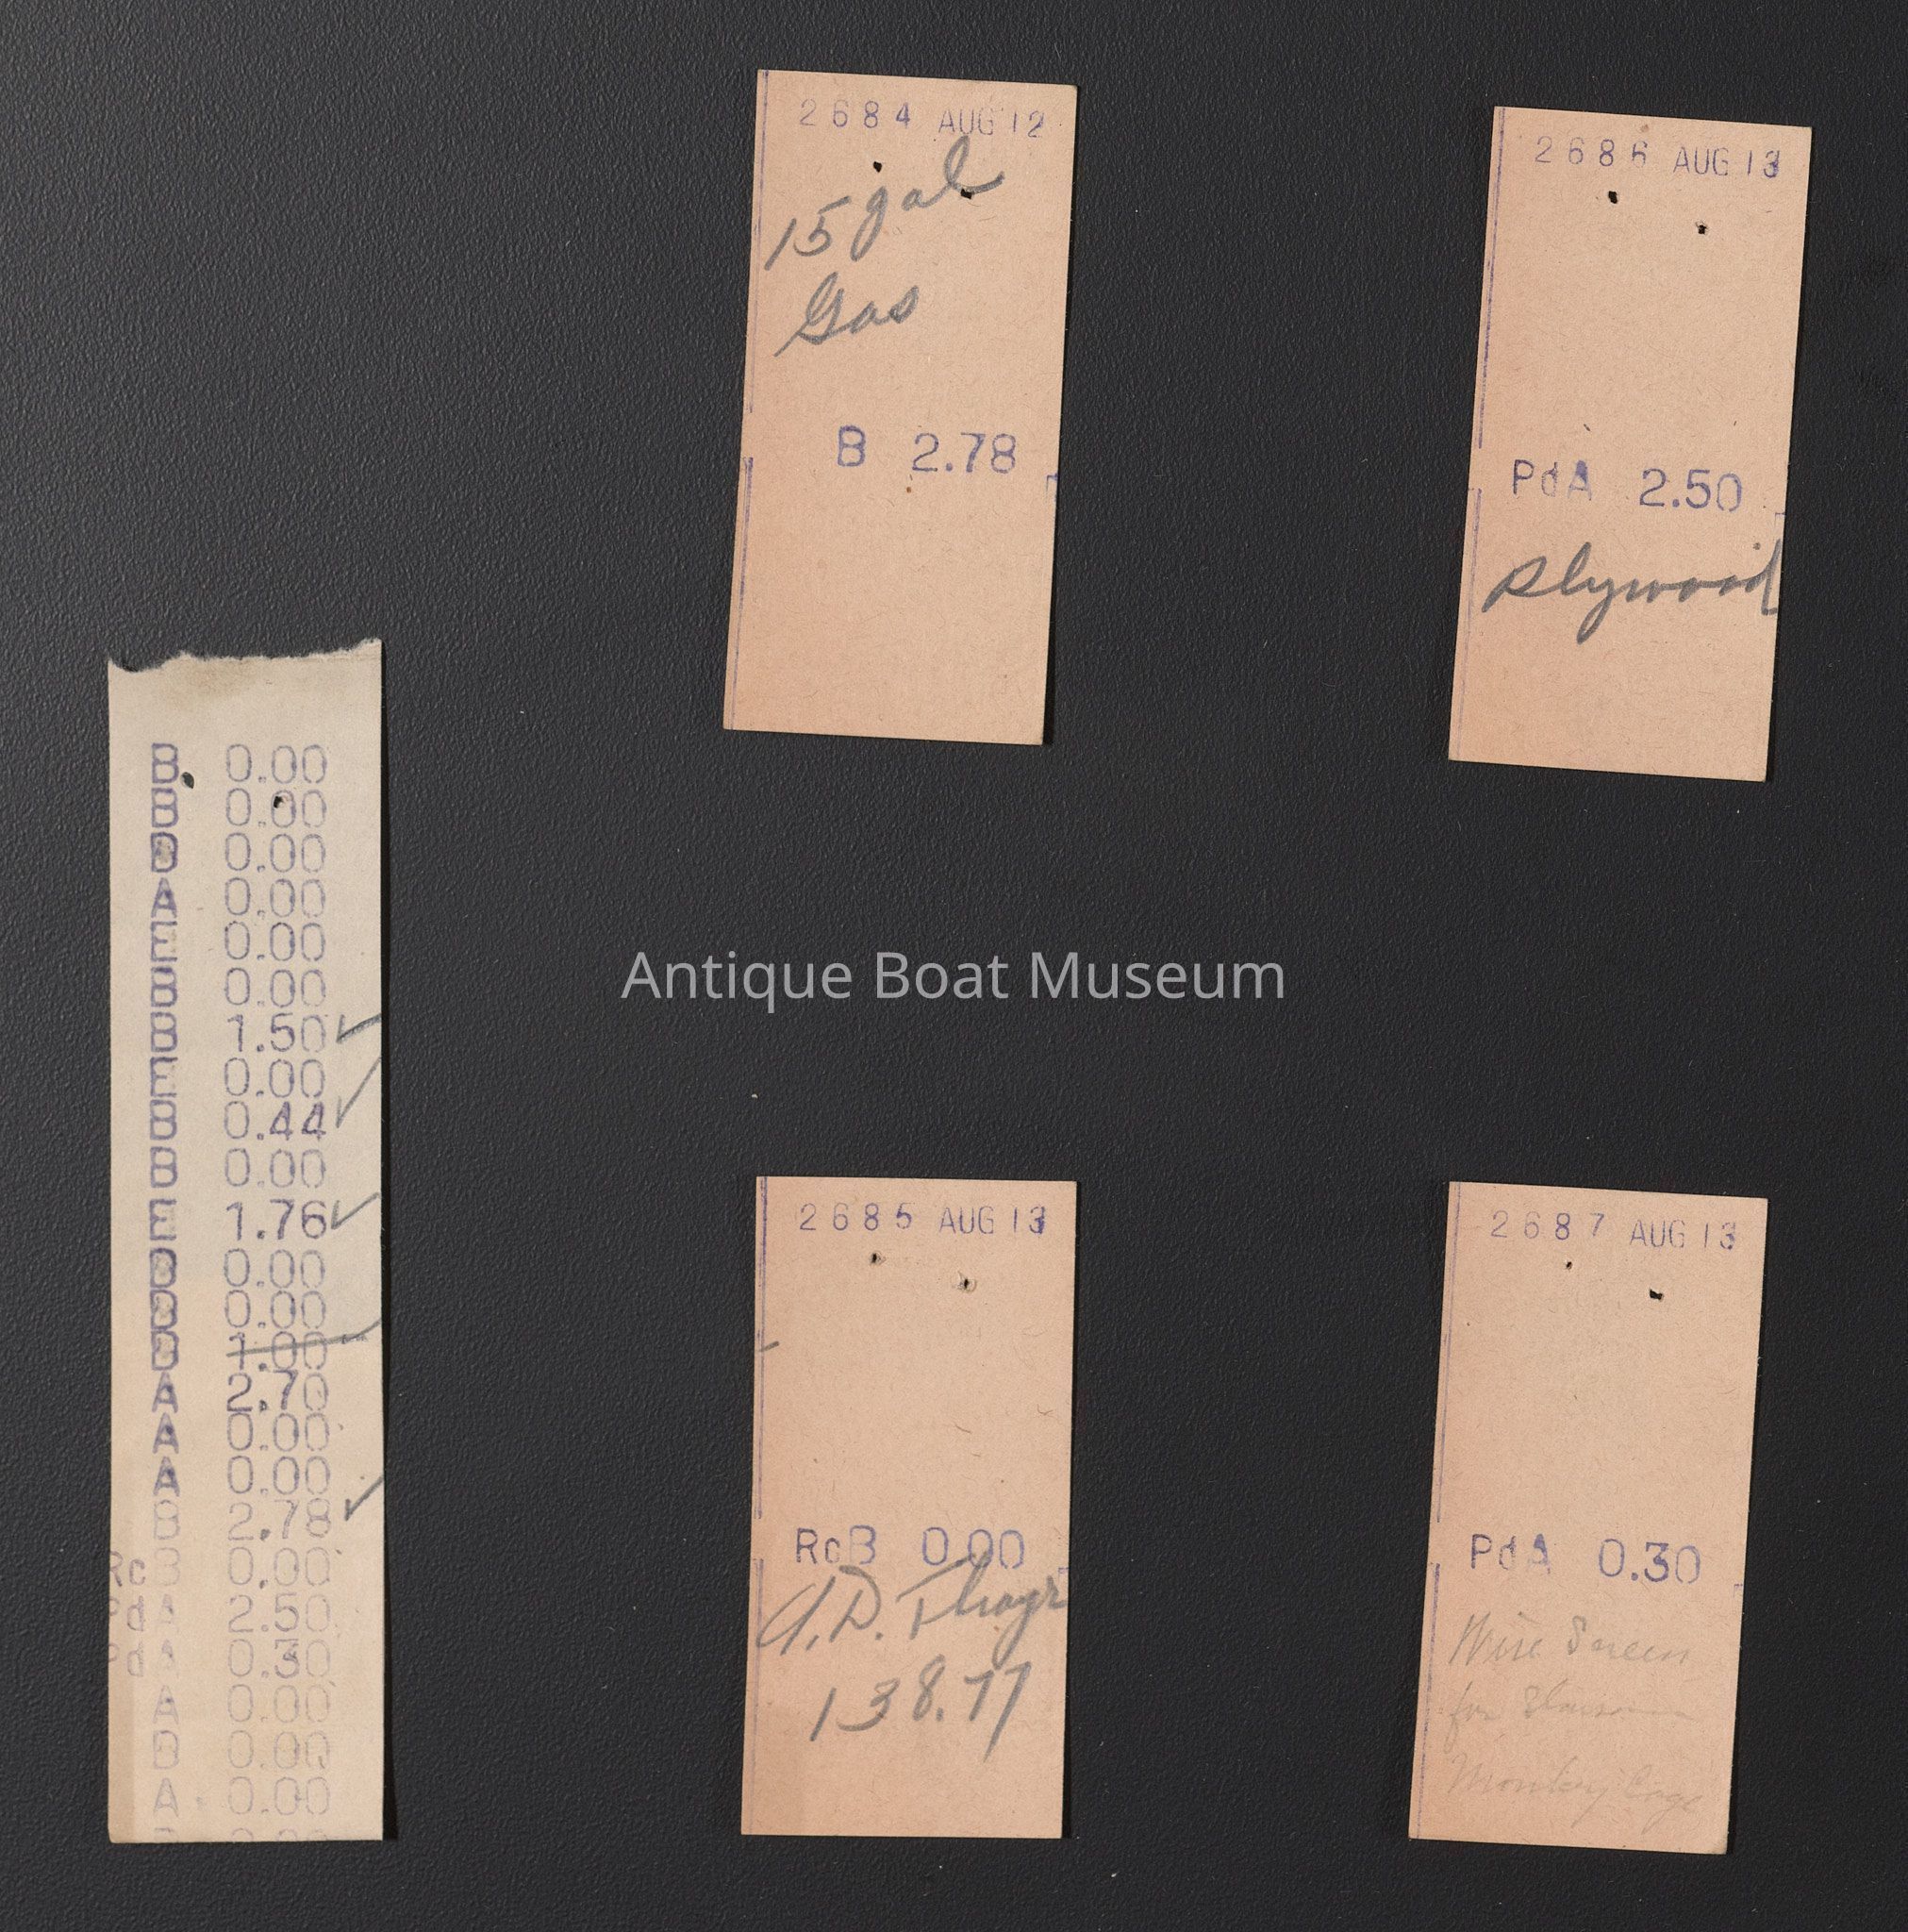 B 0.00
B 0.00
B 0.00
A 0.00
E 0.00
B 0.00
B 1.50
E 0.00
B 0.44
B 0.00
E 1.76
B 0.00
B 0.00
1.00
A 2.70
A 0.00
A 0.00
B 2.78
Rc B 0.00
Pd A 2.50
Pd A 0.30
A 0.00
B 0.00
A 0.00
2684 AUG 12
15 gal
Gas
B 2.78
2685 AUG 13
RcB 0.00
138.77
2686 AUG 13
PdA 2.50
plywood
2687 AUG 13
PdA 0.30
Wire Screen
for
Monkey Cage
Antique Boat Museum